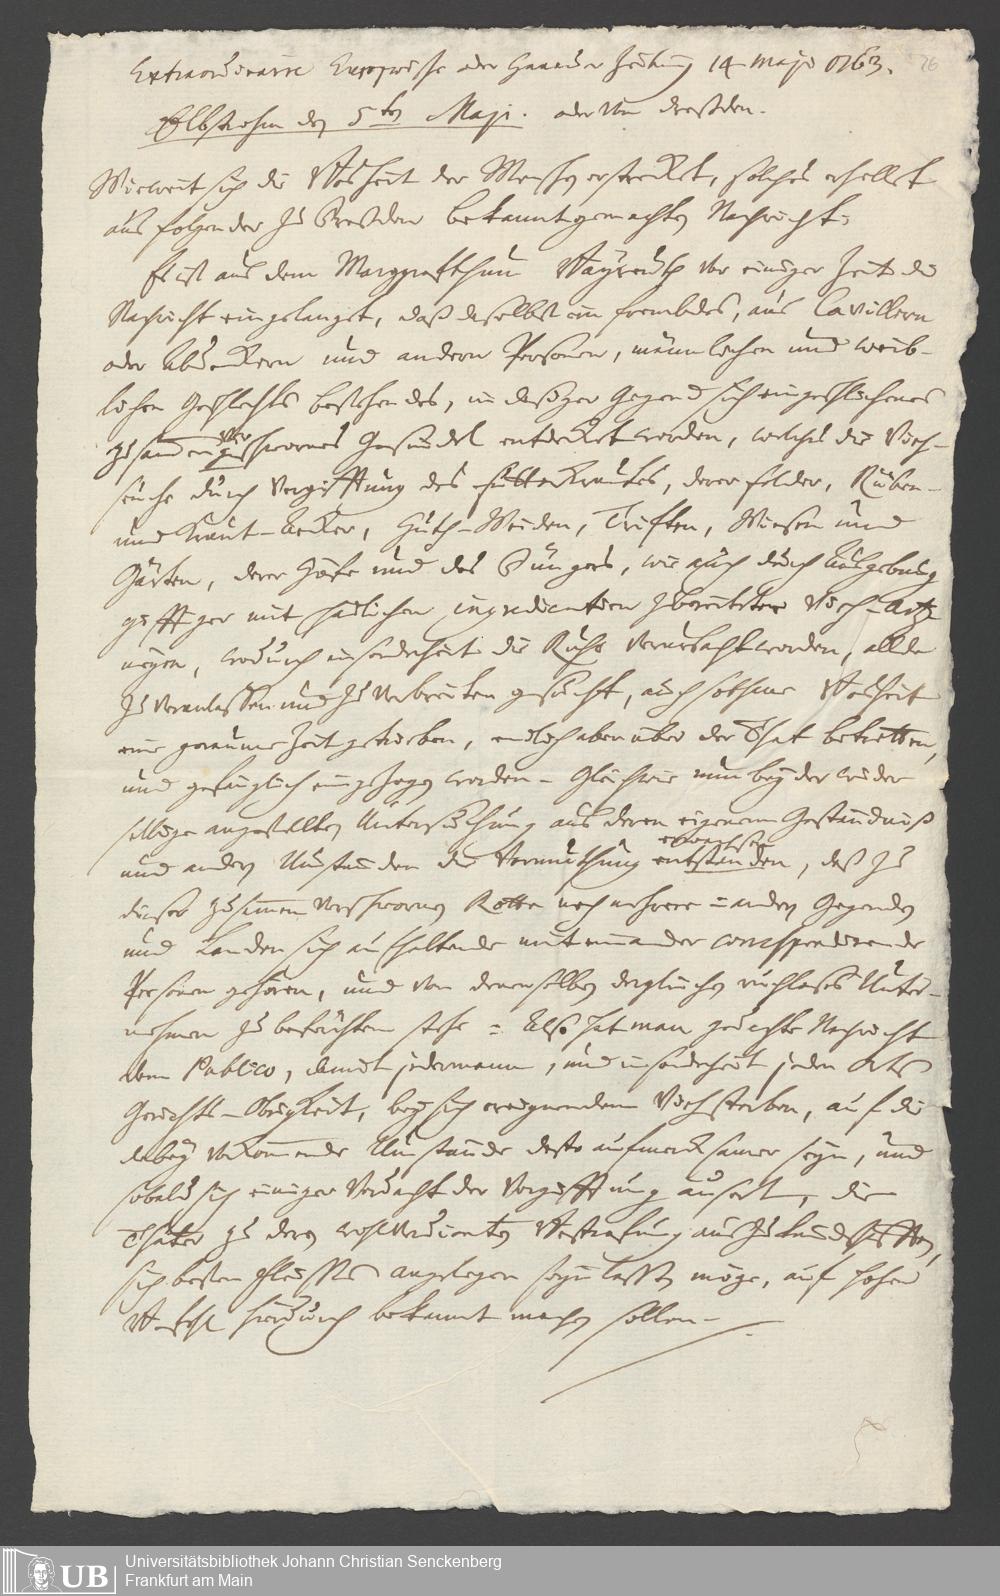 Extraordinaire Europæische oder Hanauer Zeitung 14 Maji 1763.
26
Elbstrohm den 5ten Maji. oder von Dresden.
Wieweit sich die Bosheit der Menschen erstrecket, solches erhellet
aus folgender zu Dresden bekanntgemachten Nachricht:
Es ist aus dem Marggrafthum Bayreuth vor einiger Zeit die
Nachricht eingelanget, daß daselbst ein frembdes, aus Cavillern
oder Abdeckern und andern Personen, männlichen und weib-
lichen Geschlechts bestehendes, in dasiger Gegend sich eingeschlichenes
zusammen verschwornes Gesindel entdecket worden, welches die Vieh-
seuche durch Vergifftung des Futterkrautes, derer Felder, Rüben-
und Kraut-Aecker, Huth-Weiden, Trifften, Wiesen und
Gärten, derer Höfe und des Düngers, wie auch durch Ausgebung
gifftiger mit schädlichen ingredientien zubereiteter Vieh-Artz-
neyen, wodurch insonderheit die Ruhr verursacht worden, allda
zu veranlassen und zu verbreiten gesucht, auch sothane Bosheit
eine geraume Zeit getrieben, endlich aber über der That betretten,
und gefänglich eingezogen worden - Gleichwie nun bey der wieder
selbige angestellten Untersuchung aus deren eigenem Geständniß
und andern Umständen die Vermuthung entstanden, daß zu
erwachsen
dieser zusammen verschwornen Rotte noch mehrere in andern Gegenden
und Landen sich aufhaltende mit einander correspondirende
Personen gehören, und von denenselben dergleichen ruchloses Unter-
nehmen zu befürchten stehe: Also hat man gedachte Nachricht
dem Publico, damit jedermann, und insonderheit jeden Orts
Gerichts-Obrigkeit, bey sich ereignendem Viehsterben, auf die
dabey vorkommende Umstände desto aufmercksamer seyn, und
sobald sich einiger Verdacht der Vergifftung äusert, die
Thäter zu deren wohlverdienten Bestrafung auszukundschafften,
sich besten Fleisses angelegen seyn lassen möge, auf hohen
Befehl hierdurch bekannt machen sollen -
UB
Universitätsbibliothek Johann Christian Senckenberg
Frankfurt am Main